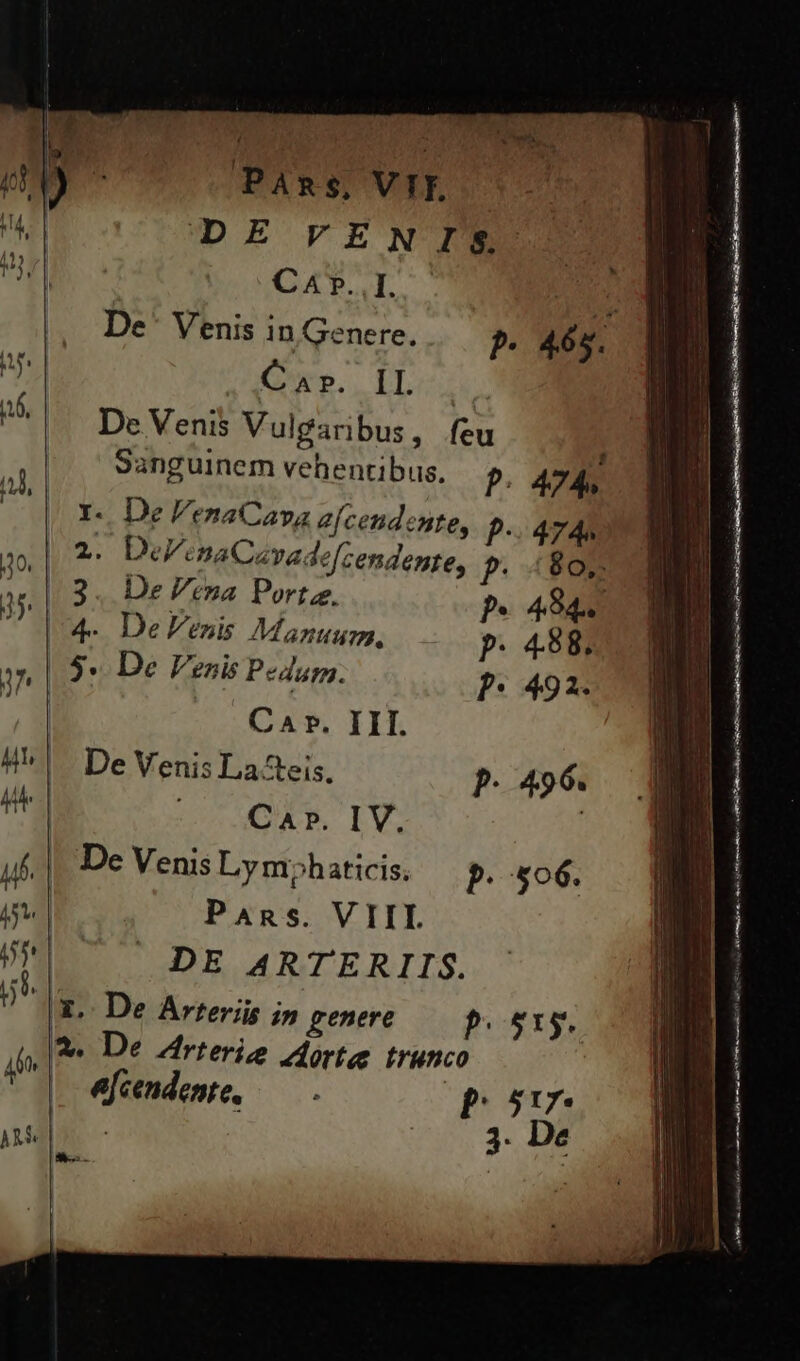 PARS. VII.
DE VENIS.
CAP. I.
De Venis in Genere. p. 465.
CAP. II.
De Venis Vulgaribus, ſeu
Sanguinem vehentibus. p. 474.
1. De VenaCava aſcendente, p. 474.
2. DeVenaCavadeſcendente, p. 480.
3. De Vena Portæ. p. 484.
4. De Venis Manuum. p. 488.
5. De Venis Pedum. p. 492.
CAP. III.
De Venis Lacteis. p. 496.
CAP. IV.
De Venis Lymphaticis. p. 506.
PARS. VIII.
DE ARTERIIS.
1. De Arteriis in genere p. 515.
2. De Arteriæ Aortæ trunco
aſcendente. p. 517.
3. De